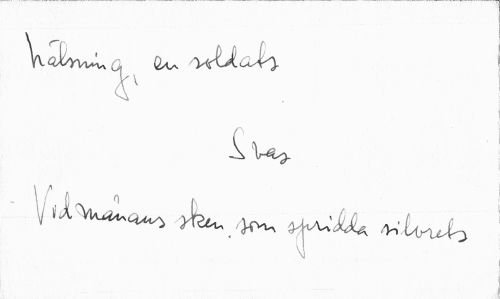 hälsning, en soldats
Svas
Vid månans sken, som spridda silvrets